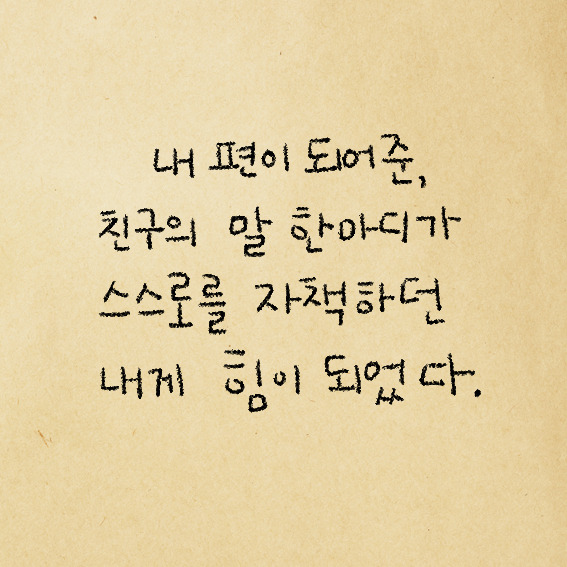 내 편이 되어준,
친구의 말 한마디가
스스로를 자책하던
내게 힘이 되었다.